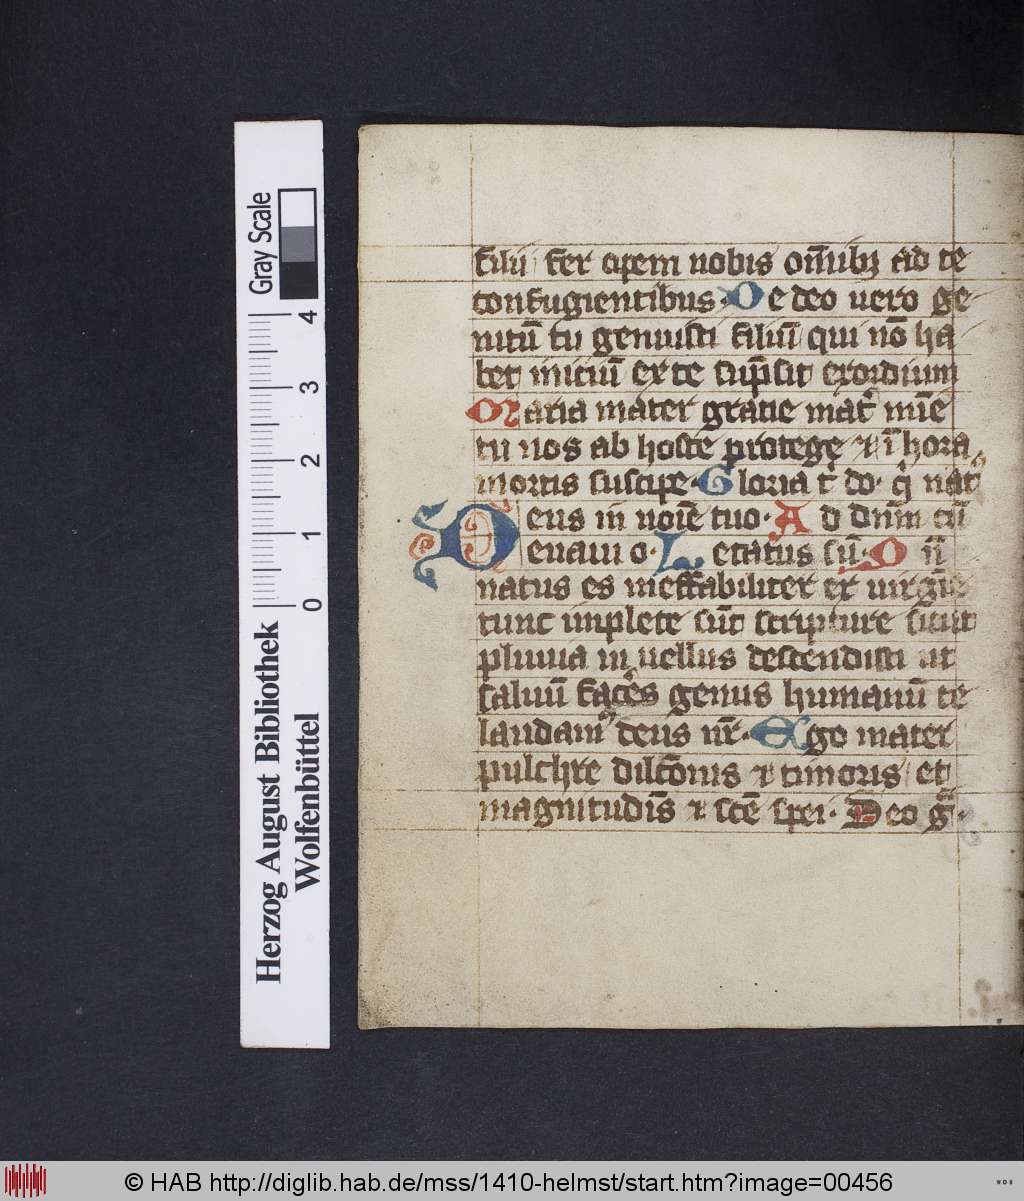 Gray Scale
4
3
2
1
0
Herzog August Bibliothek
Wolfenbüttel
filii fer opem nobis om̅ibꝫ ad te
confugientibus. De deo vero ge
nitū tu genuisti filiū qui nō ha
bet iniciū ex te sūpsit exordium
Maria mater gratie mat᷒ mīe
tu nos ab hoste protege ⁊ ī hora
mortis suscipe. Gloria t̄ do. q̄ nat᷒
Deus in noīe tuo. Ad dnm̄ cū
Leuaui o. Letatus sū. Qn̄
natus es ineffabiliter ex uirgīe
tunc implete sūt scripture sicut
pluuia in uellus descendisti ut
saluū faceres genus humanū te
laudam᷒ deus nr̄. Ego mater
pulchre dilc̄onis ⁊ timoris et
magnitudīs ⁊ sc̄e spei. Deo gr̄.
© HAB http://diglib.hab.de/mss/1410-helmst/start.htm?image=00456